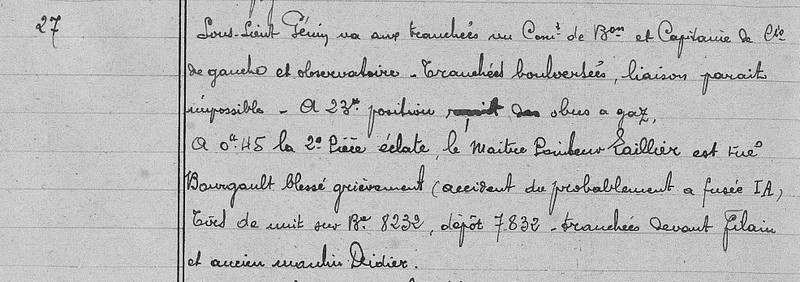 27
Sous-Lieut Génin va aux tranchées vu Comt de Bon et Capitaine de Cie
de gauche et observatoire - Tranchées boulversées, liaison parait
impossible - A 23h position reçoit des obus a gaz,
A 0h45 la 2e Pièce éclate, le Maitre Pointeur Taillier est tué
Bourgault blessé grièvement (accident du probablement a fusée IA,
Tirs de nuit sur Bie 8232, dépôt 7832 - tranchées devant Filain
et ancien moulin Didier.